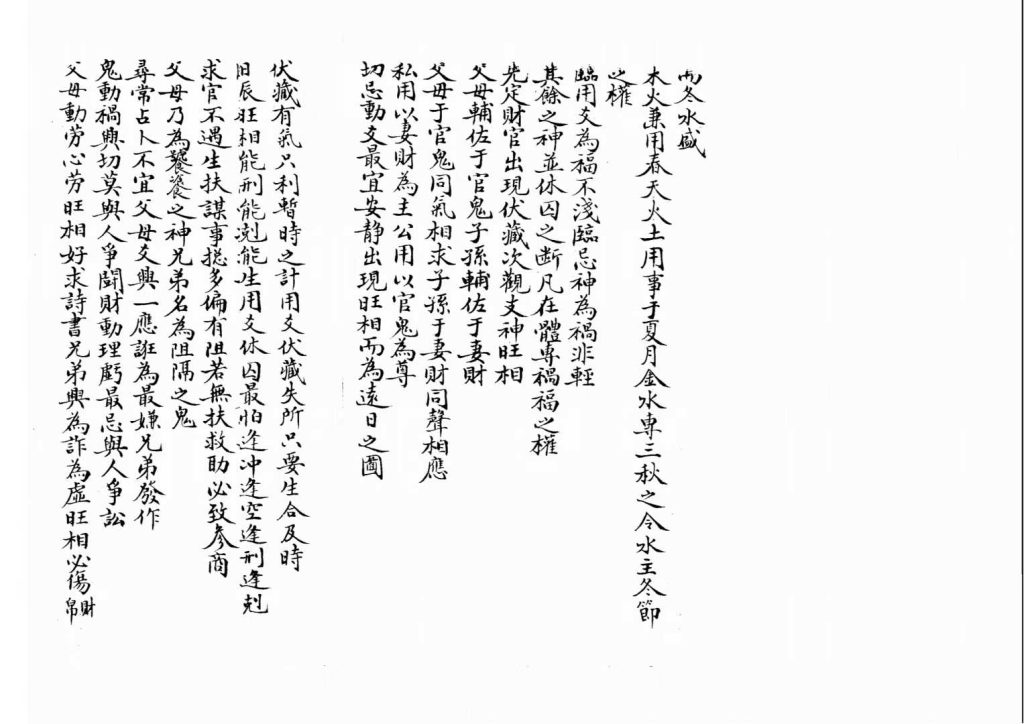 而冬水盛
木火兼用春天火土用事于夏月金水專三秋之令水主冬節
之權
臨用爻為福不淺臨忌神為禍非輕
其餘之神並休囚之断凡在體專禍福之權
先定財官出現伏藏次觀支神旺相
父母輔佐于官鬼子孫輔佐于妻財
父母于官鬼同氣相求子孫于妻財同聲相應
私用以妻財為主公用以官鬼為尊
切忌動爻最宜安静出現旺相而為遠日之圖
伏藏有氣只利暫時之計用爻伏藏失所只要生合及時
日辰旺相能刑能剋能生用爻休囚最怕逢冲逢空逢刑逢剋
求官不遇生扶謀事揔多偏有阻若無扶救助必致參商
父母乃為饕餮之神兄弟名為阻隔之鬼
尋常占卜不宜父母爻興一應誑為最嫌兄弟發作
鬼動禍興切莫與人爭鬪財動理虧最忌與人爭訟
父母動勞心勞旺相好求詩書兄弟興為詐為虛旺相必傷財帛